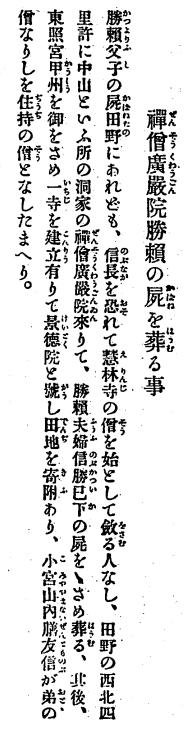 禪僧廣嚴院勝賴の屍を葬る事
勝賴父子の屍田野にあれども、信長を恐れて慧林寺の僧を始として斂る人なし、田野の西北四
里許に中山といふ所の洞家の禪僧廣嚴院來りて、勝賴夫婦信勝已下の屍をゝさめ葬る、其後、
東照宮甲州を御をさめ一寺を建立有りて景德院と號し田地を寄附あり、小宮山內膳友信が弟の
僧なりしを住持の僧となしたまへり。